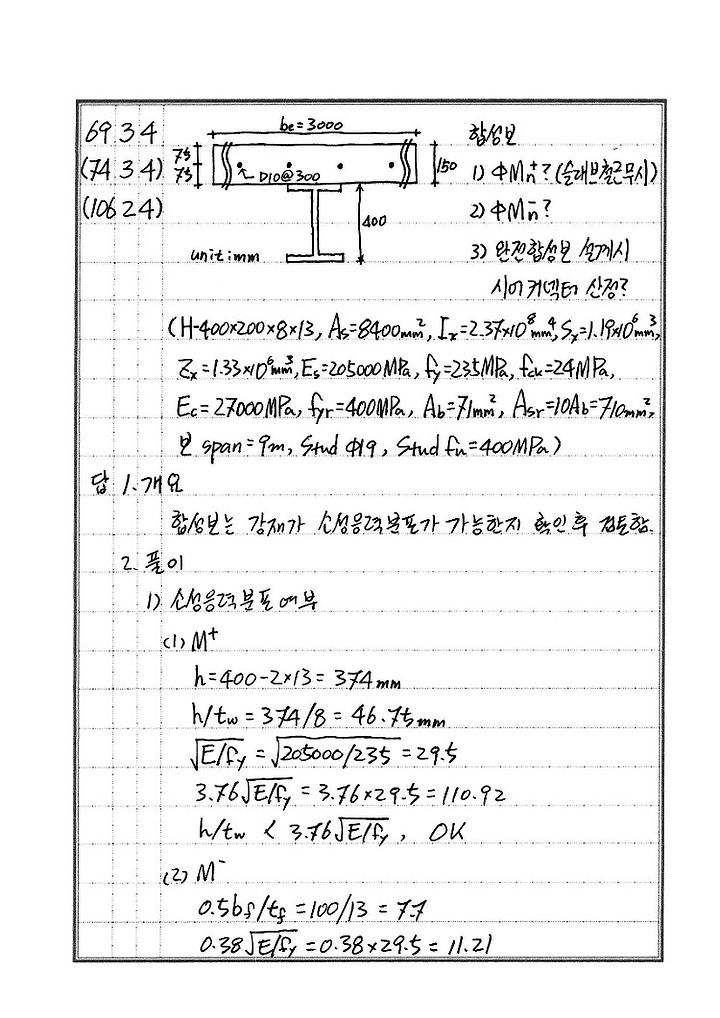 69 3 4
(74 3 4)
(106 2 4)
be=3000
75
75
D10@300
150
400
unit:mm
합성보
1) ΦMn⁺? (슬래브철근무시)
2) ΦMn⁻?
3) 완전합성보 설계시
시어커넥터 산정?
(H-400×200×8×13, As=8400mm², Ix=2.37×10⁸mm⁴, Sx=1.19×10⁶mm³,
Zx=1.33×10⁶mm³, Es=205000MPa, fy=235MPa, fck=24MPa,
Ec=27000MPa, fyr=400MPa, Ab=71mm², Asr=10Ab=710mm²,
보 span=9m, Stud Φ19, Stud fu=400MPa)
답 1. 개요
합성보는 강재가 소성응력분포가 가능한지 확인 후 검토함.
2. 풀이
1) 소성응력분포여부
(1) M⁺
h=400-2×13=374mm
h/tw=374/8=46.75mm
√E/fy=√205000/235=29.5
3.76√E/fy=3.76×29.5=110.92
h/tw < 3.76√E/fy, OK
(2) M⁻
0.5bf/tf=100/13=7.7
0.38√E/fy=0.38×29.5=11.21